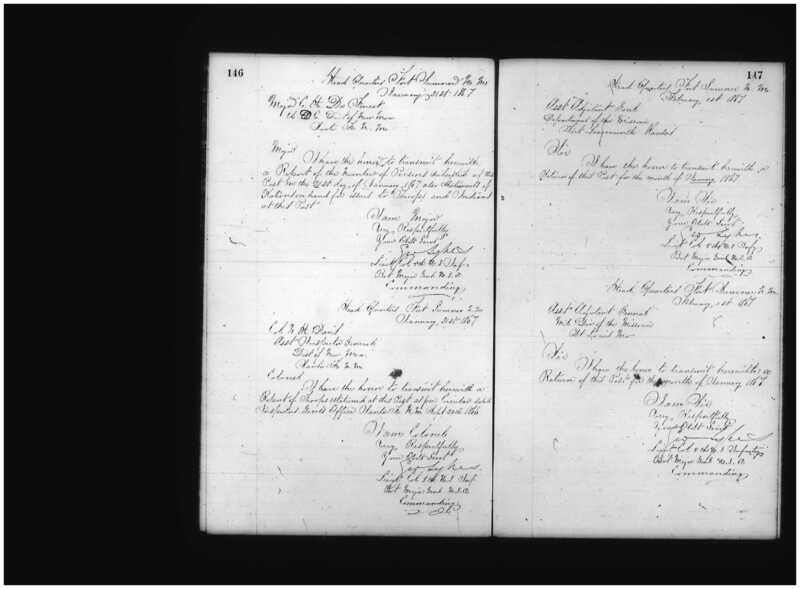 146
Head Quarters Fort Sumner N. Mex
January 31st 1867
Major C. H. De Forest
A. D. C. Dist of New Mex
Santa Fe N. Mex
Major
I have the honor to transmit herewith
a Report of the Number of Persons at this
Post on the 31st day of January 1867 also Statement of
on hand for issue to Troops and Indians
at this Post
I am Major
Very Respectfully
Your Obdt Servt
Lieut Col 5th U.S. Infy.
Bvt Major Genl U.S.A.
Commanding
Head Quarters Fort Sumner N. M.
January 31st 1867
Asst Inspector General
Dist of New Mex.
Santa Fe N. M.
Colonel
I have the honor to transmit herewith a
Report of Troops stationed at this Post as per Circular dated
Inspector Genls Office Santa Fe N. M. Sept 20th 1866
I am Colonel
Very Respectfully
Your Obdt Servt
Lieut Col 5th U.S. Inf.
Bvt Major Genl U.S.A.
Commanding
147
Head Quarters Fort Sumner N. M.
February 1st 1867
Asst Adjutant Genl
Department of the Missouri
Fort Leavenworth Kansas
Sir
I have the honor to transmit herewith a
Return of this Post for the month of January 1867
I am Sir
Very Respectfully
Your Obdt Servt
Lieut Col 5th U.S. Infy
Bvt Major Genl U.S.A.
Commanding
Head Quarters Fort Sumner N. M.
February 1st 1867
Asst Adjutant General
Mil Div of the Missouri
St Louis Mo
Sir
I have the honor to transmit herewith a
Return of this Post for the month of January 1867
I am Sir
Very Respectfully
Your Obdt Servt
Lieut Col 5th U.S. Infty
Bvt Major Genl U.S.A.
Commanding